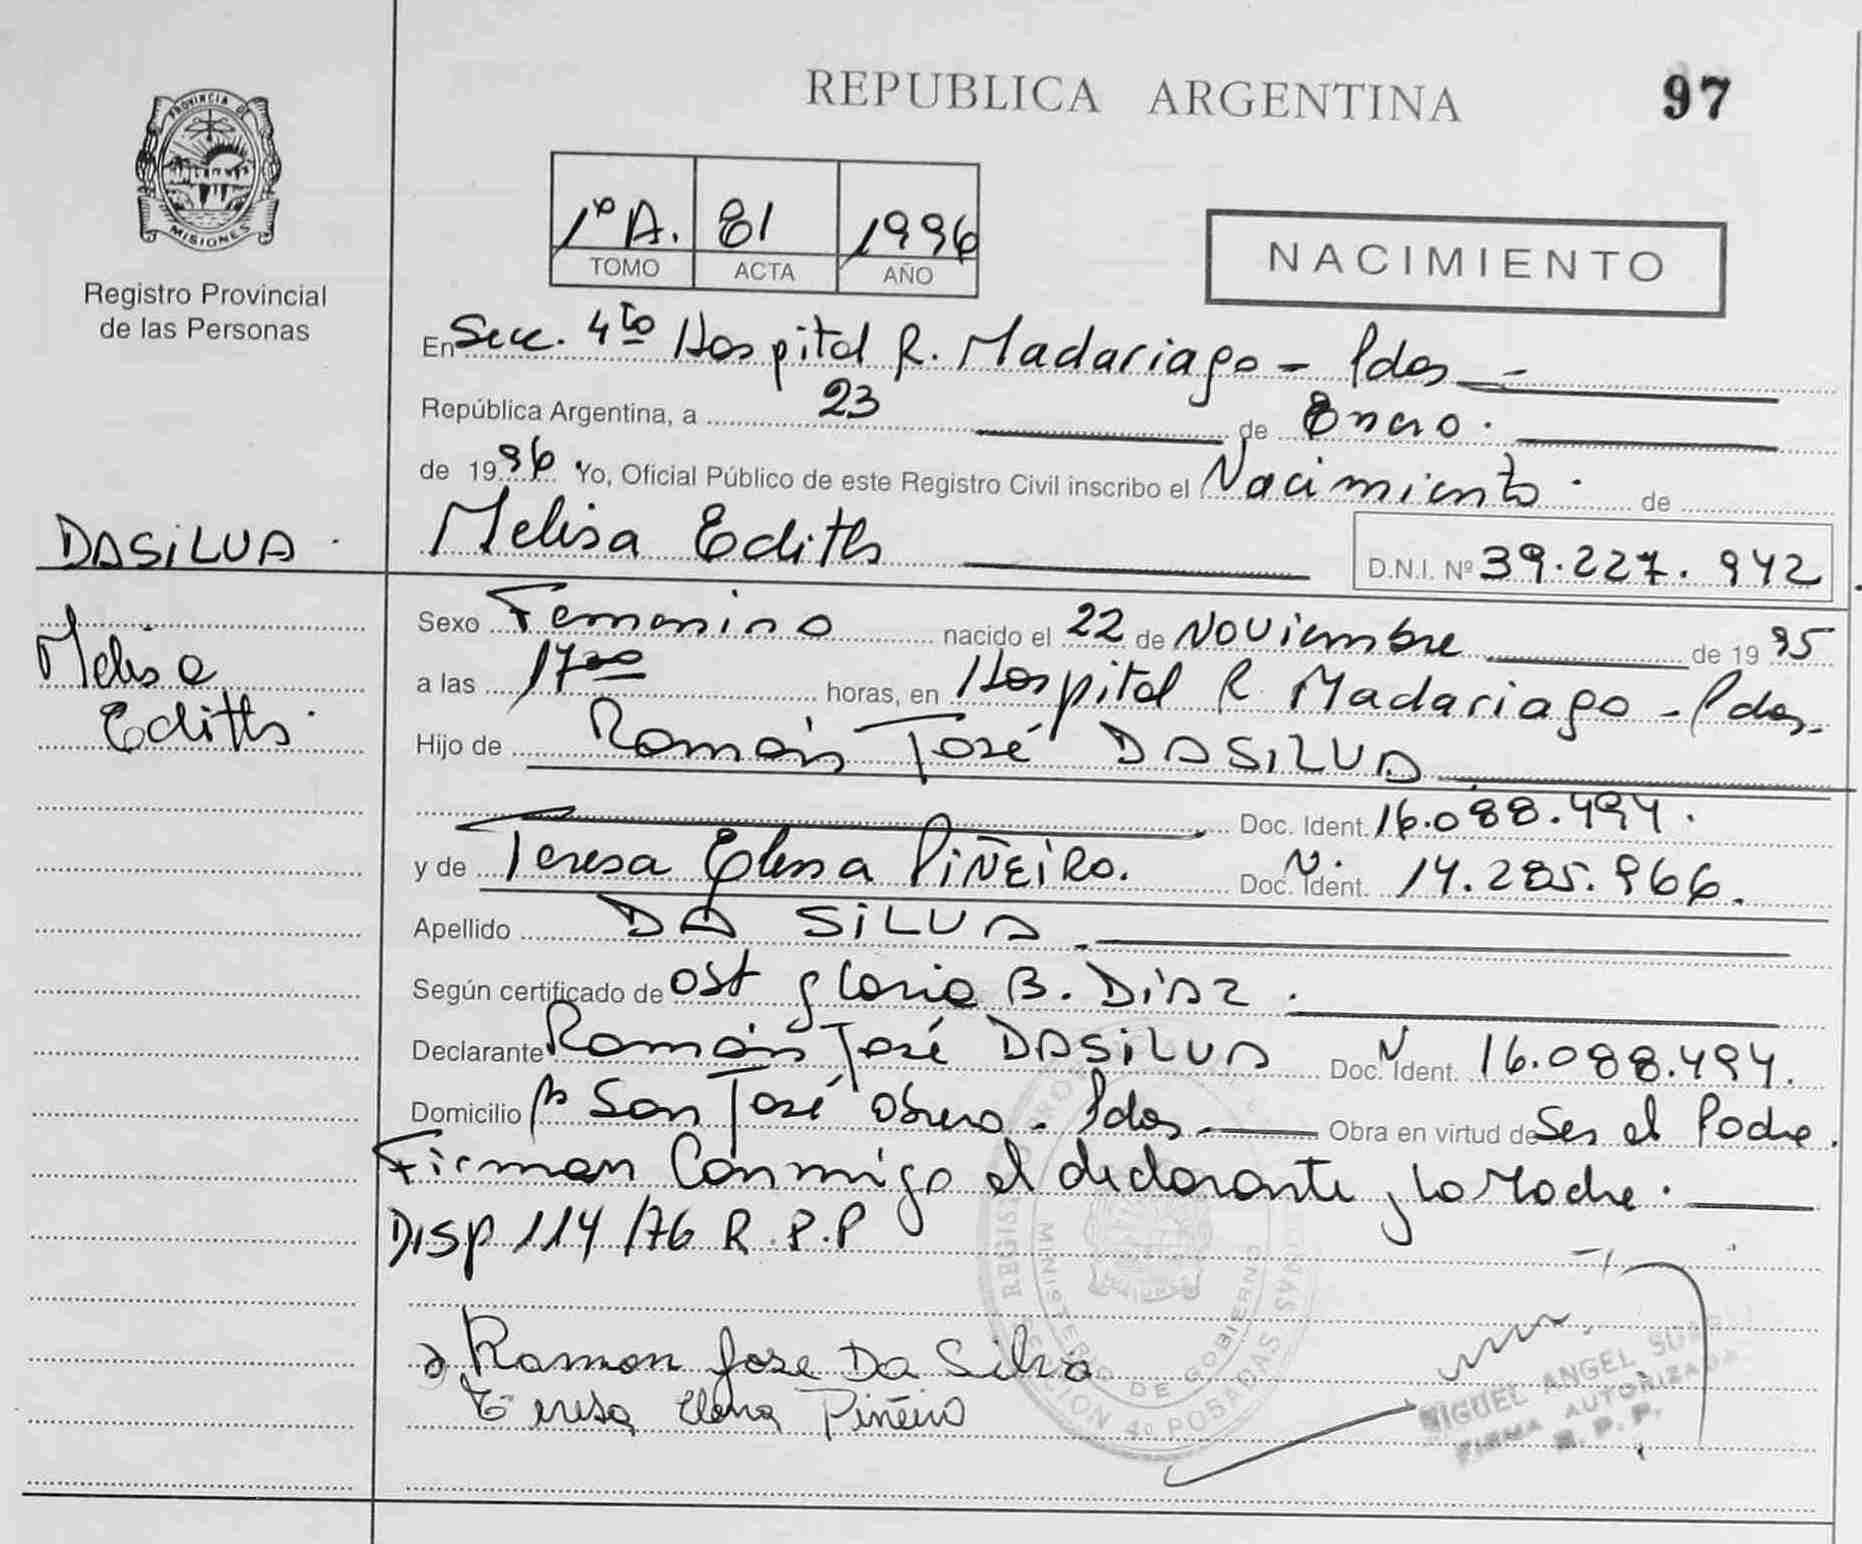 REPUBLICA ARGENTINA
97
PROVINCIA DE
MISIONES
Registro Provincial
de las Personas
1º A. 81 1996
TOMO ACTA AÑO
NACIMIENTO
En Secc. 4to Hospital R. Madariaga - Pdas
República Argentina, a 23 de Enero.
de 1996 Yo, Oficial Público de este Registro Civil inscribo el Nacimiento. de
DASILVA.
Melisa Edith
D.N.I. Nº 39.227.942
Melisa
Edith.
Sexo Femenino nacido el 22 de Noviembre de 1995
a las 17 00 horas, en Hospital R. Madariaga - Pdas.
Hijo de Ramón José DASILVA
Doc. Ident. 16.088.494.
y de Teresa Elena PiÑEiRO. Doc. Ident. N. 14.285.966.
Apellido DA SiLVA.
Según certificado de Ost Gloria B. DiAZ.
Declarante Ramón José DASiLVA Doc. Ident. N 16.088.494.
Domicilio Bº San José Obrero - Pdas. Obra en virtud de Ser el Padre.
Firman Conmigo el declarante y la Madre.
DISP 114/76 R.P.P
Ramon Jose Da Silva
Teresa Elena Piñeiro
MINISTERIO DE GOBIERNO
SECCION 4º POSADAS
MIGUEL ANGEL
FIRMA AUTORIZADA
R. P. P.